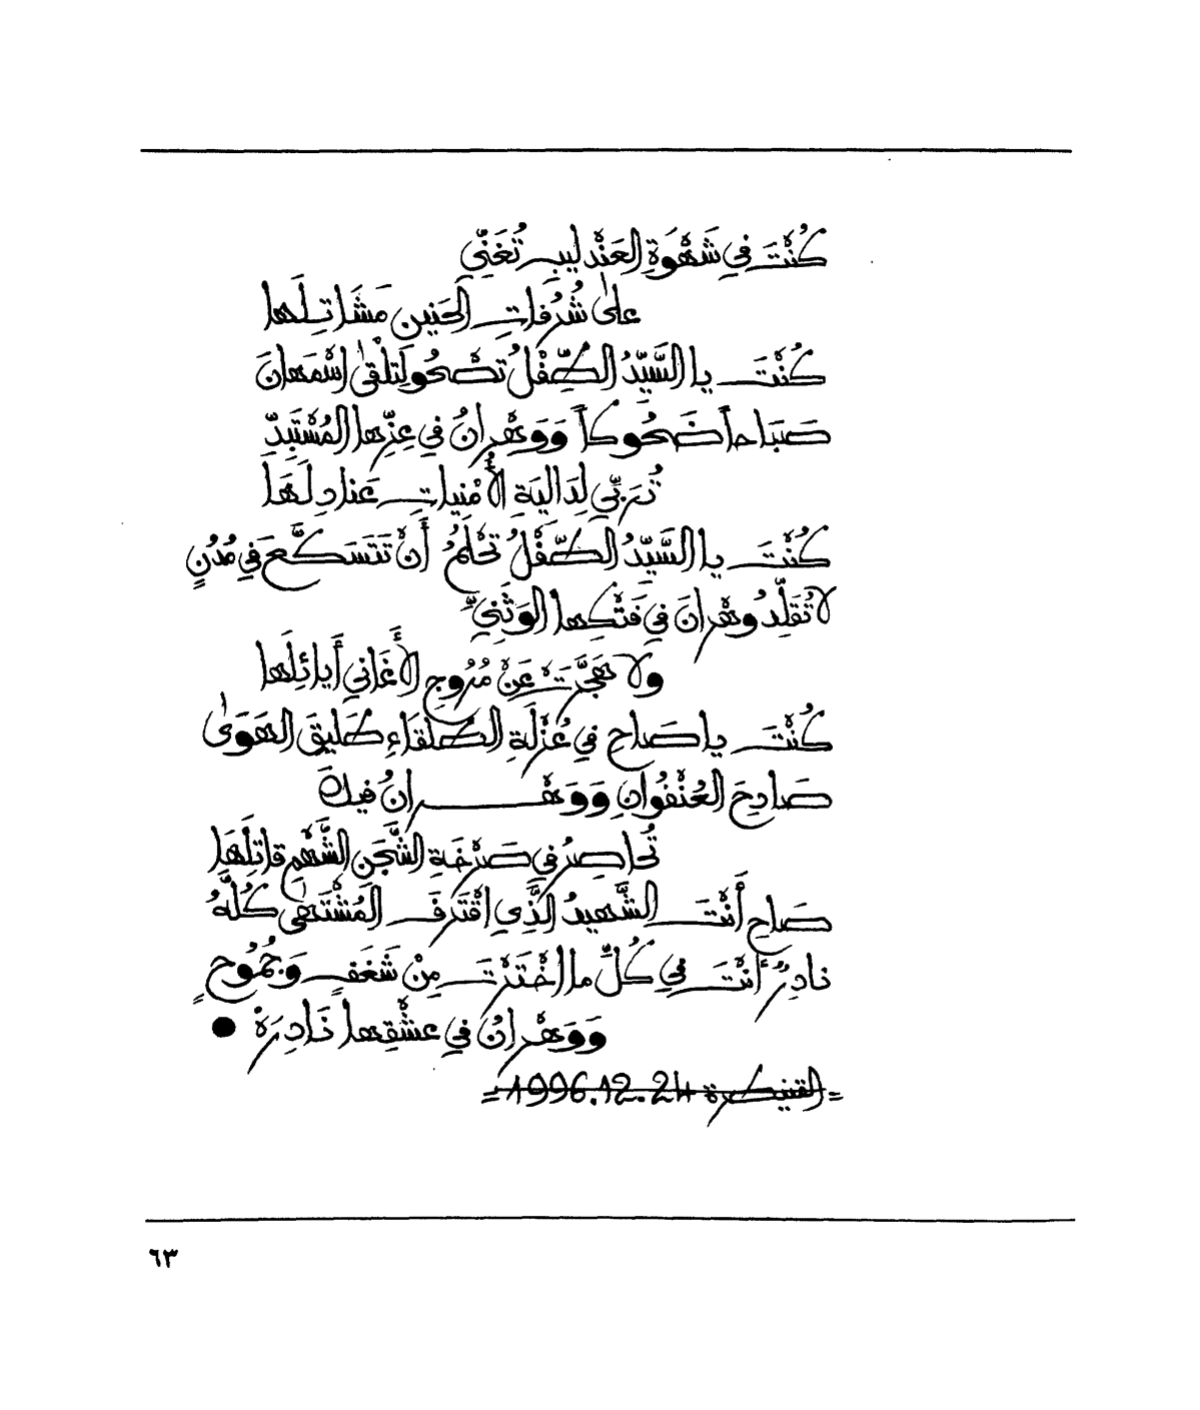 كُنْتَ في شَهْوَةِ العَنْدليبِ تُغَنِّي
على شُرُفاتِ الحَنينِ مَشَاتِلَها
كُنْتَ يا السَّيِّدُ الطِّفْلُ تَصْحُو لِتَلْقى اسْمَهانَ
صَبَاحاً ضَحُوكاً وَوَهْرانُ في عِزِّها المُسْتَبِدِّ
تُرَبِّي لِدَاليَةِ الأُمْنِياتِ عَنادِلَهَا
كُنْتَ يا السَّيِّدُ الطِّفْلُ تَحْلُمُ أَنْ تَتَسَكَّعَ في مُدُنٍ
لا تُقَلِّدُ وهْرانَ في فَتْكِها الوَثَنِيِّ
ولا هَجَّرَتْ عَنْ مُرُوجِ الأَغَاني أَيائِلَها
كُنْتَ يا صَاحِ في عُزْلَةِ الطُّلَقَاءِ طَليقَ الهَوَى
صَادِحَ العُنْفُوانِ وَوَهْرانُ فيكَ
تُحاصِرُ في صَرْخَةِ الشَّجَنِ الشَّهْمِ قاتِلَهَا
صَاحِ أَنْتَ الشَّهيدُ الَّذِي اقْتَرَفَ المُشْتَهَى كُلَّهُ
نادِرٌ أَنْتَ في كُلِّ ما اخْتَرْتَ مِنْ شَغَفٍ وَجُمُوحٍ
وَوَهْرانُ في عشْقِها نَادِرَهْ ●
=القنيطرة 1996.12.24=
٦٣